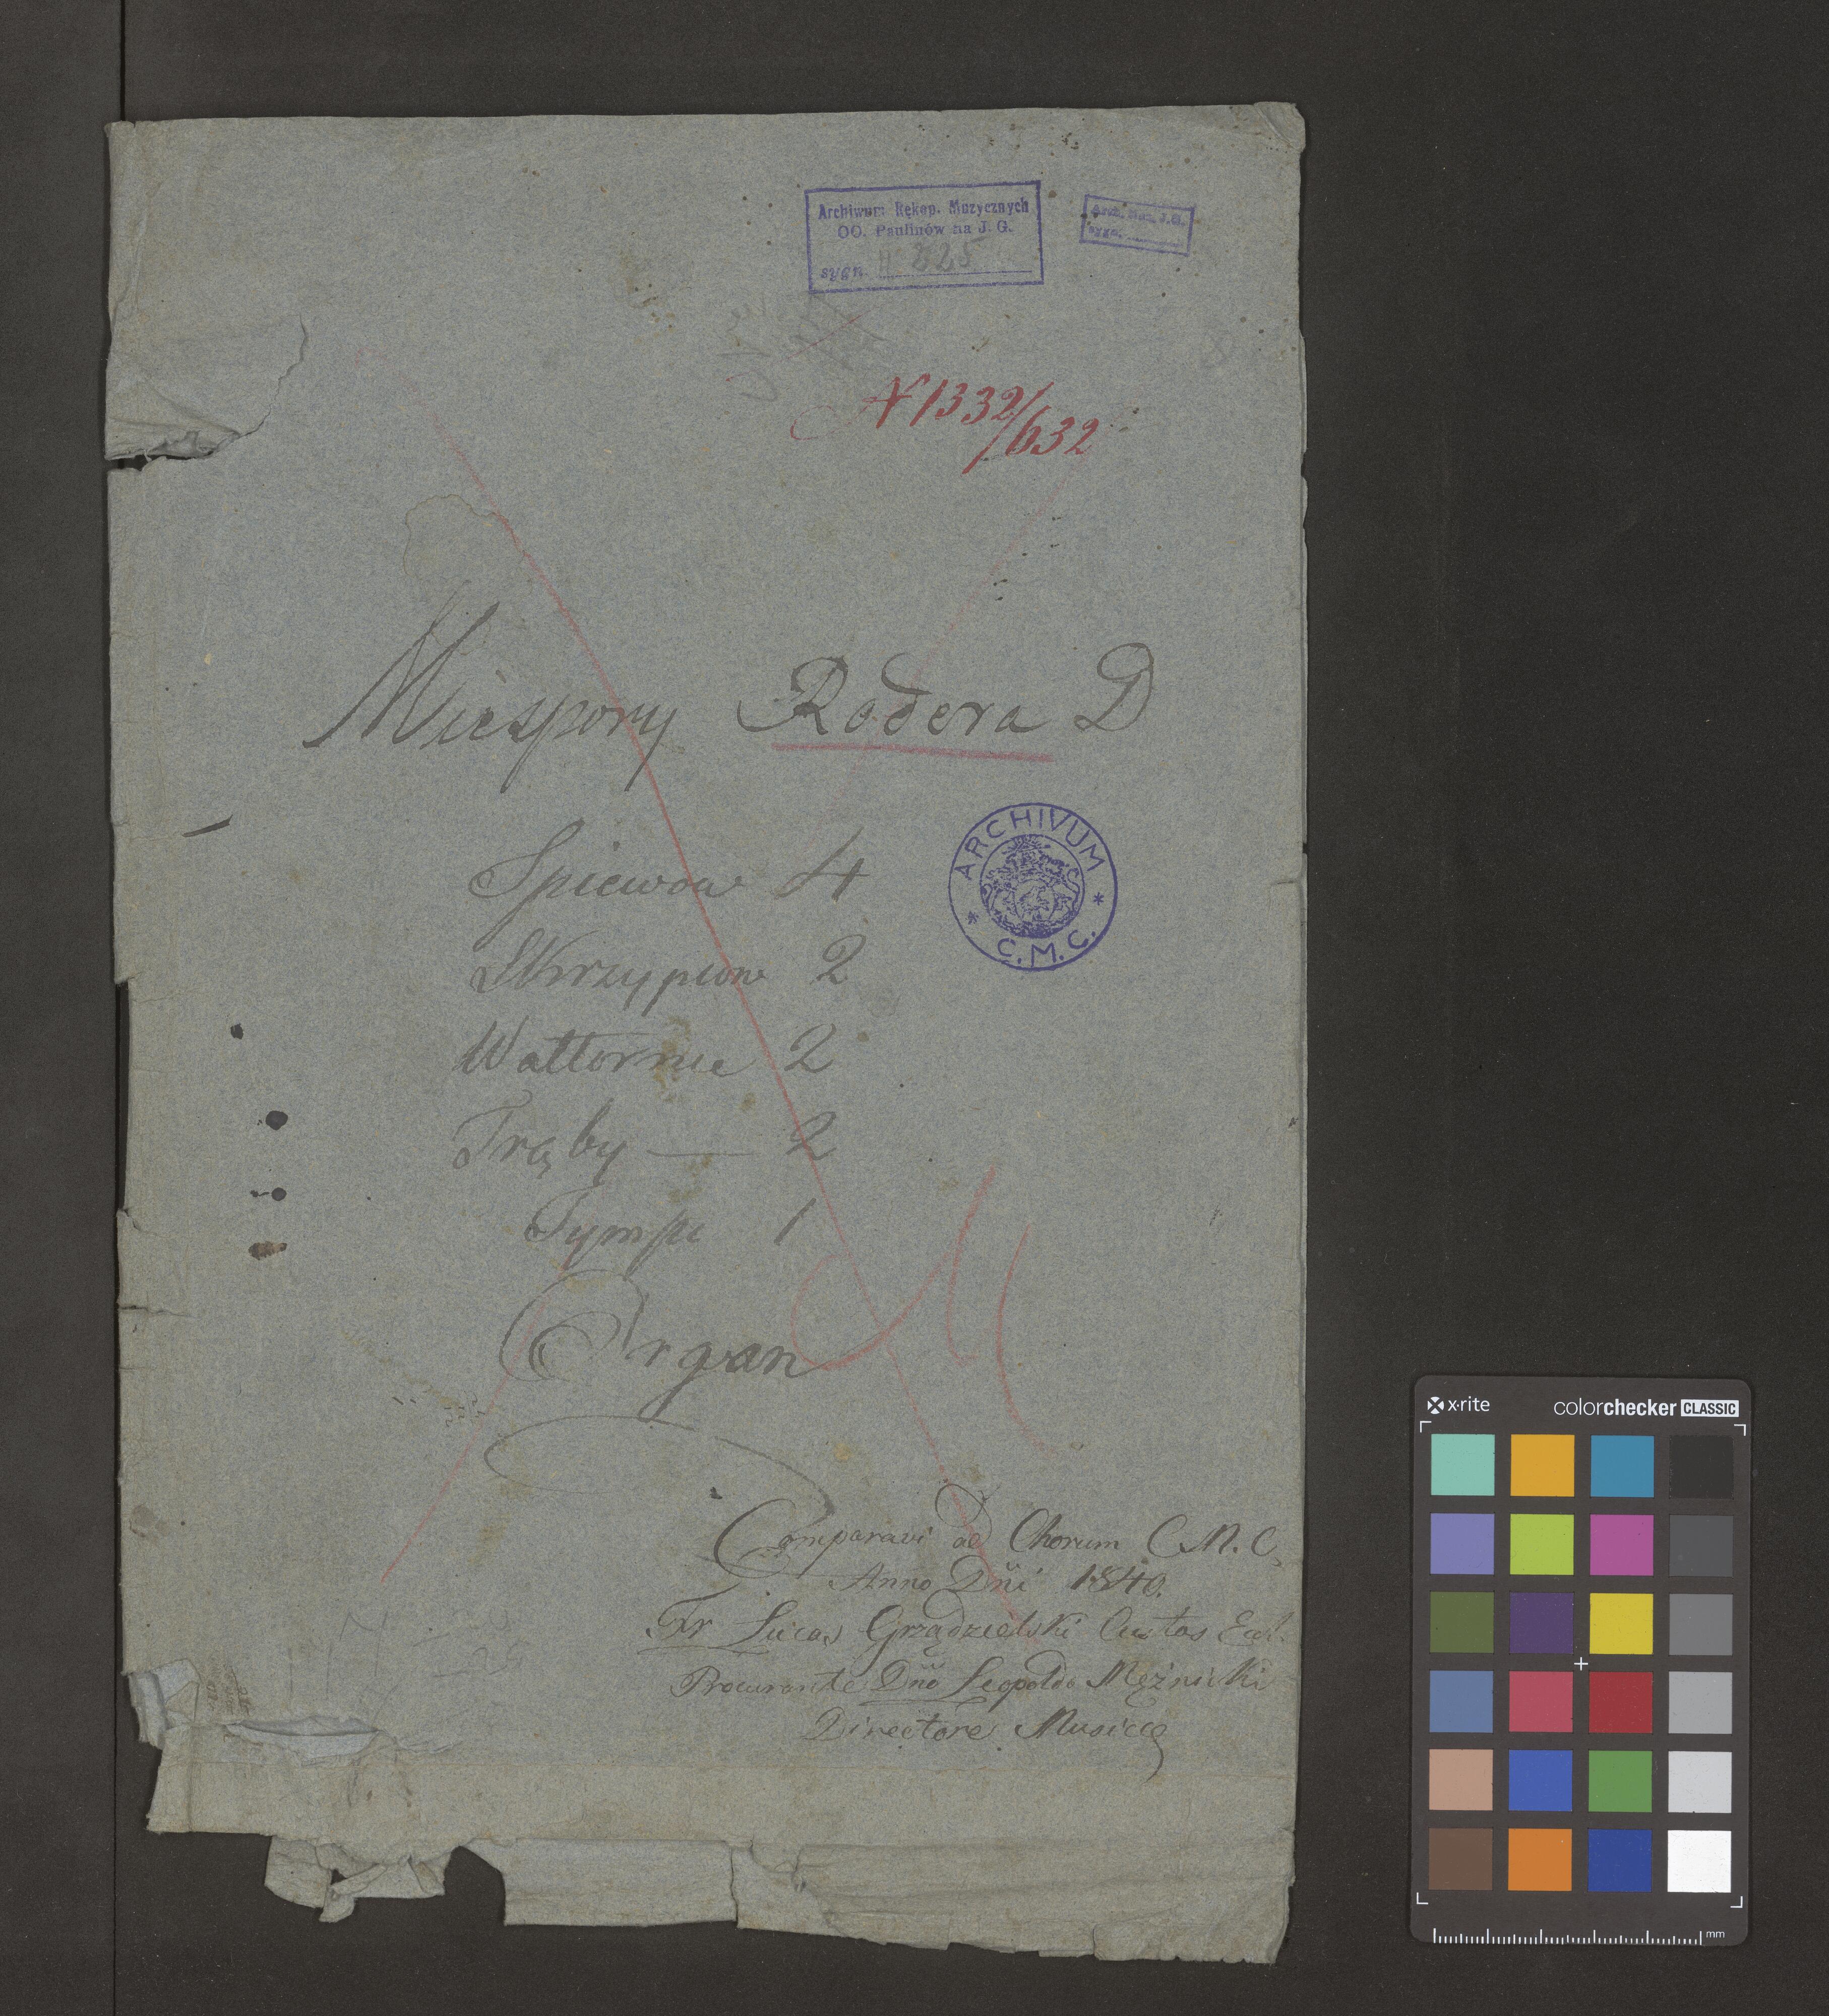 Archiwum Rękop. Muzycznych
OO. Paulinów na J. G.
sygn. 225
Arch. Muz. J. G.
sygn.
N 1332/632
Nieszpory Rodera D
Spiewow 4
Skrzypiow 2
Waltornie 2
Trąby — 2
Tympi 1
Organ
ARCHIVUM
* C.M.C. *
Comparavi ad Chorum C.M.C.
Anno Dñi 1840.
Fr Lucas Grządzielski Custos Eccl.
Procurante Dño Leopoldo Mężnicki
Directore Musicæ
x·rite
colorchecker CLASSIC
mm